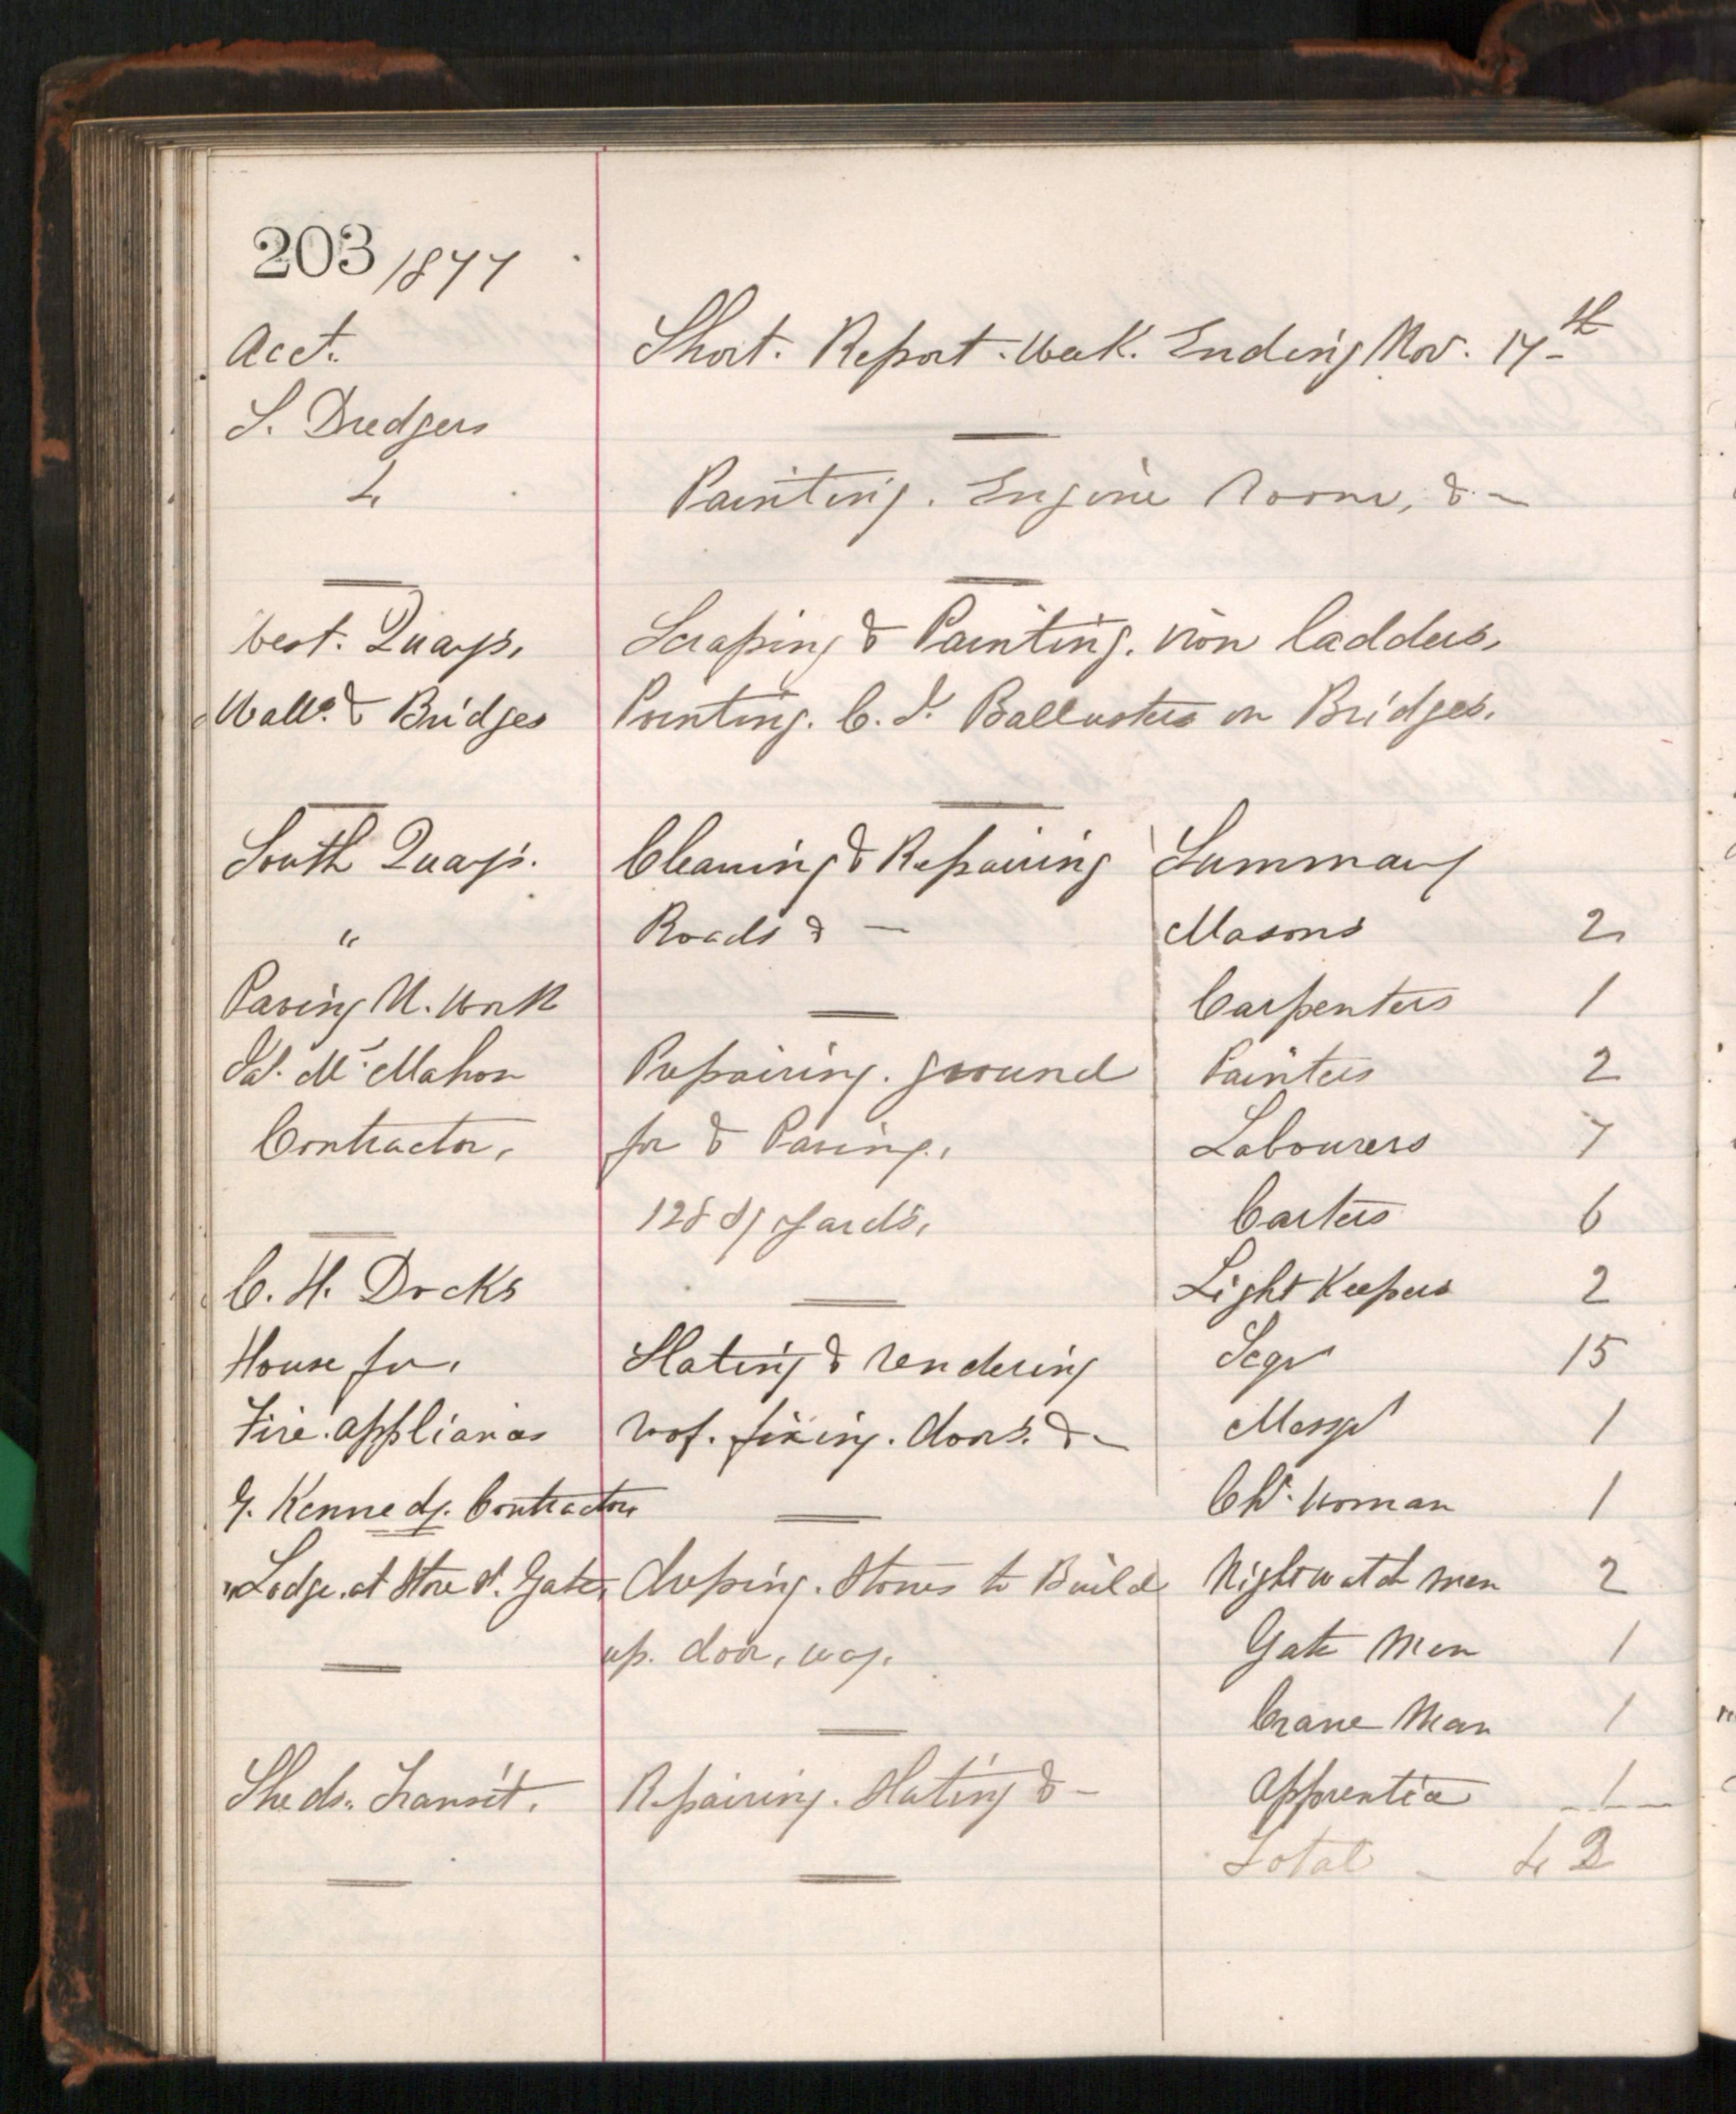 203 /1877
Acct. Short. Report. Week. Ending Nov. 17th
S. Dredgers
Painting. Engine Room, & -
West. Quays. Scraping & Painting. iron ladders.
Walls. & Bridges Painting. C. I. Ballusters on Bridges.
South Quays. Cleaning & Repairing Summary
" Roads & - Masons 2
Paving N. Work Carpenters 1
Pat. Mc Mahon Preparing. ground Painters 2
Contractor. for & Paving. Labourers 7
yards. Carters 6
C. H. Docks Light Keepers 2
House for. Slating & rendering 15
Fire. appliances roof. fixing. doors. & - Messgr 1
Kennedy. Contractor Chr. Woman 1
Lodge. at Store St. Gates Stones to Build Nightwatch men 2
up. door, way. Gate Men 1
Crane Man 1
Sheds. Transit. Repairing. Slating & - Apprentice 1
Total - 42